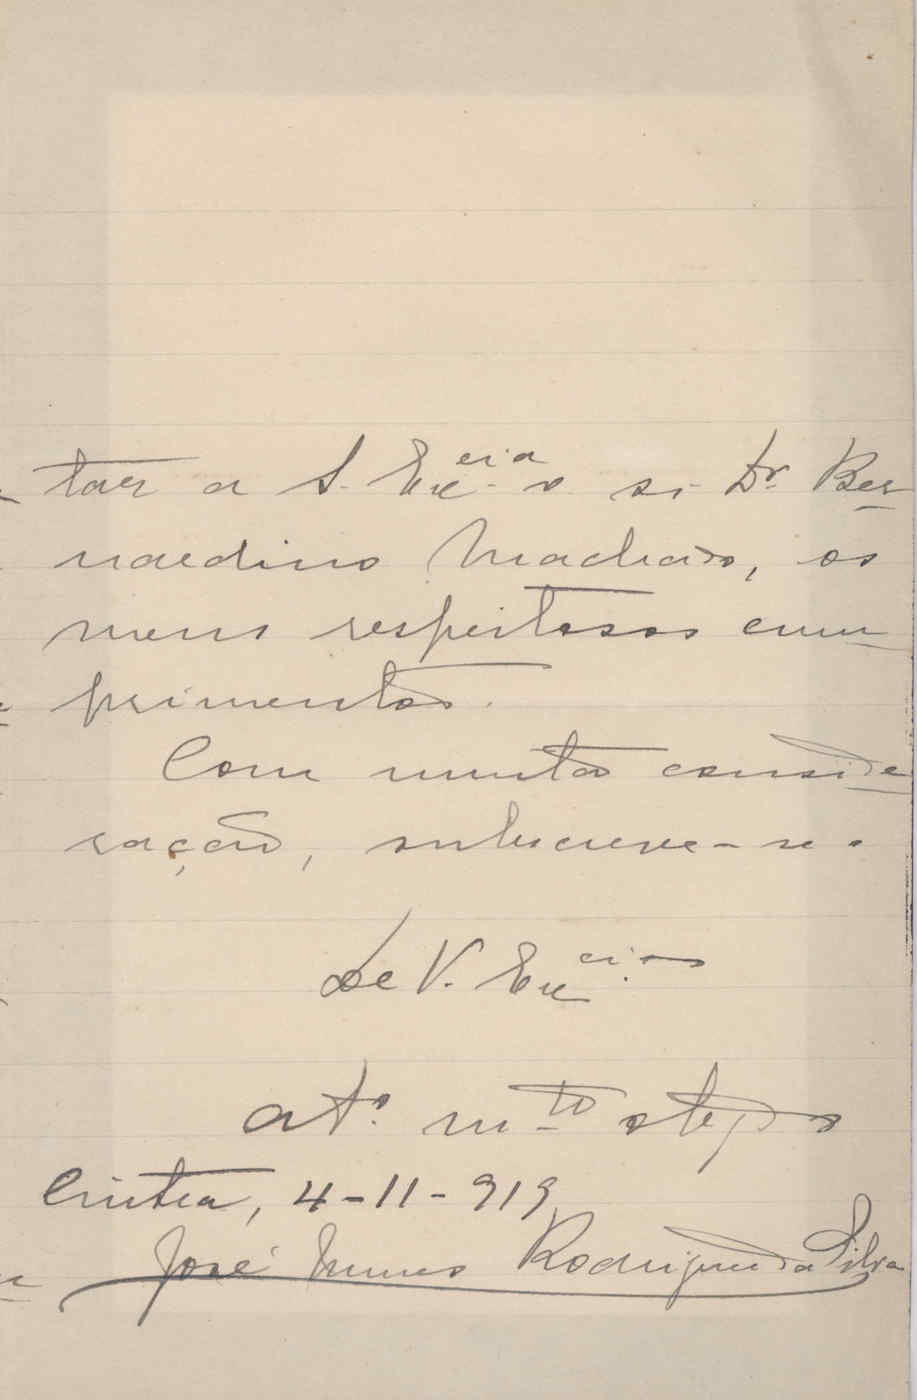 tar a S. Exc.cia o sr. Dr. Ber
nardino Machado, os
meus respeitosos cum
primentos.
Com muita conside
ração, subscreve-se.
de V. Exc.cia
at.º m.to
Cintra, 4-11-919
José Nunes Rodrigues da Silva